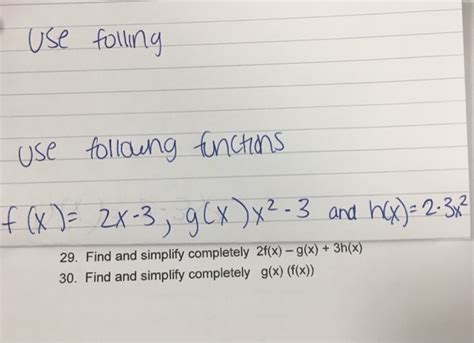 Use folling
Use follaung functions
f(x)= 2x-3, g(x)x²-3 and h(x)=2-3x²
29. Find and simplify completely 2f(x) – g(x) + 3h(x)
30. Find and simplify completely g(x) (f(x))